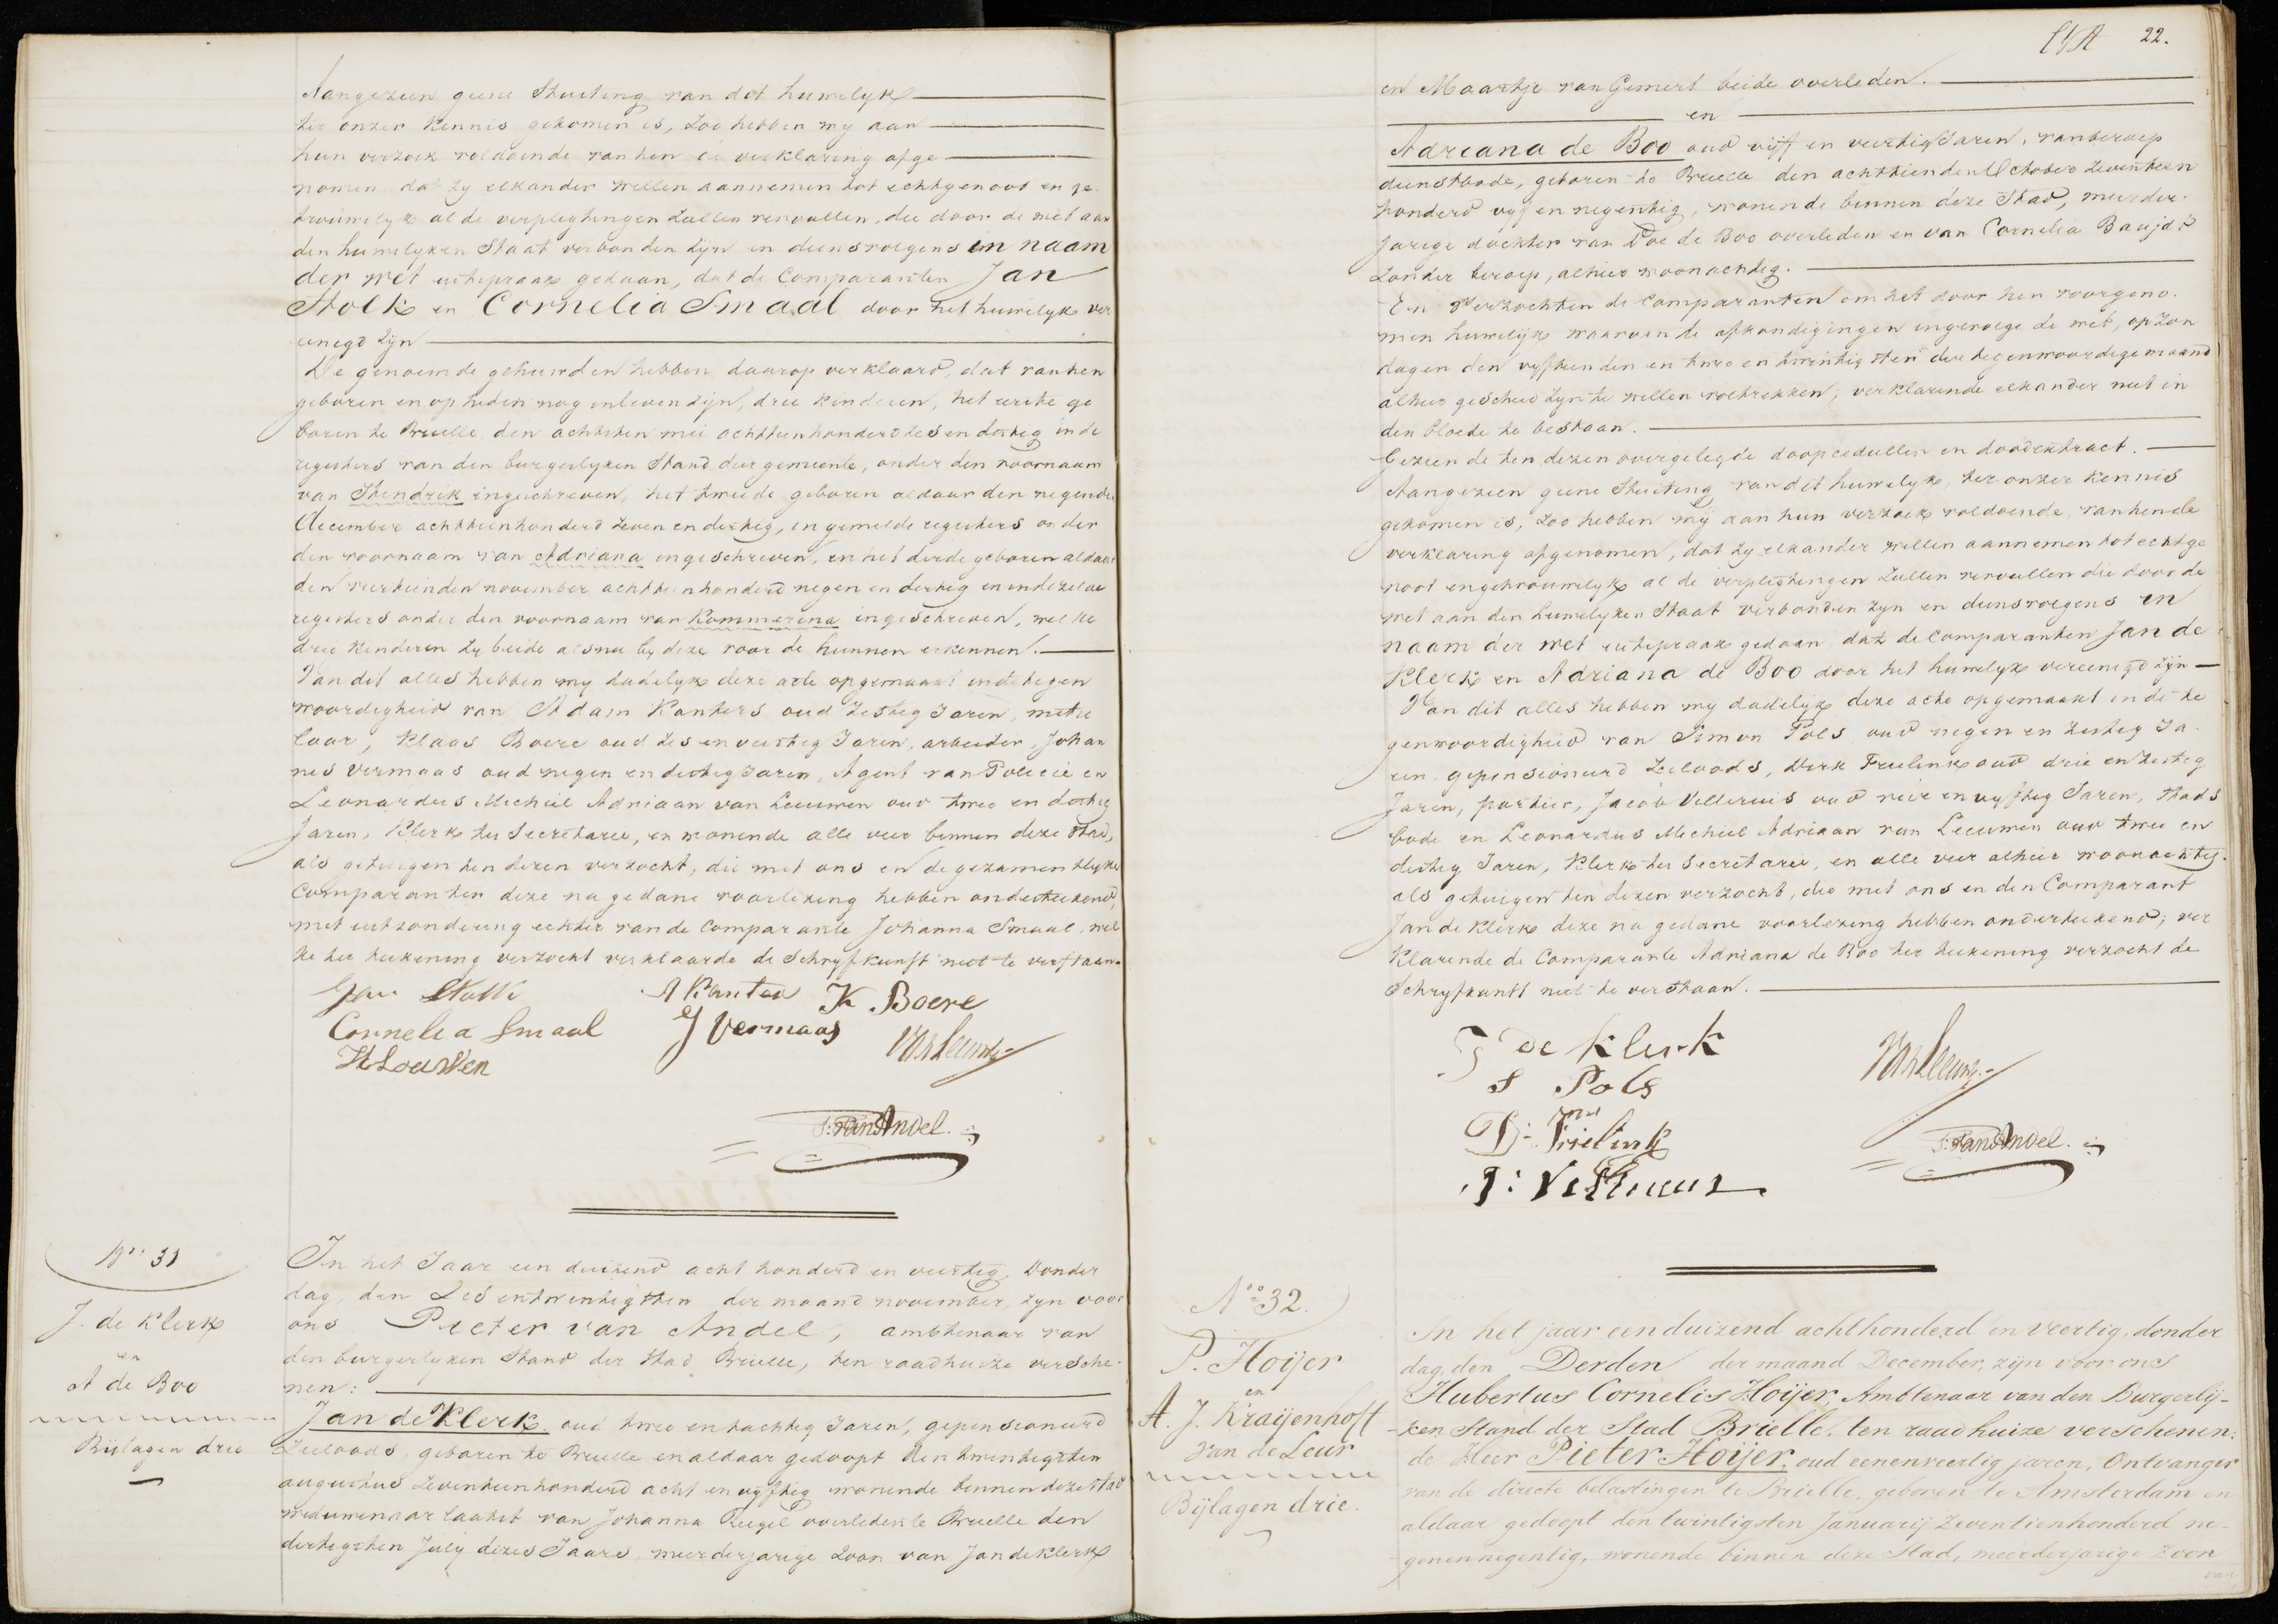 Aangezien geene Stuiting van dit huwelyk
ter onzer kennis gekomen is, Zoo hebben wy aan
hun verzoek voldoende van hen de verklaring afge
nomen dat zy elkander willen aannemen tot echtgenoot en ge
trouwelyk al de verpligtingen zullen vervullen, die door de wet aan
den huwelyken Staat verbonden zyn en diensvolgens in naam
der wet uitspraak gedaan, dat de Comparanten Jan
Stolk en Cornelia Smaal door het huwelyk ver
eenigd zyn
De genoemde gehuwden hebben daarop verklaard, dat van hen
geboren en op heden nog in leven zyn, drie kinderen, het eerste ge
boren te Brielle den achtsten mei achttienhonderd zes en dertig in de
registers van den burgerlyken Stand dier gemeente, onder den voornaam
van Hendrik ingeschreven, het tweede geboren aldaar den negenden
December achttienhonderd zeven en dertig, in gemelde registers onder
den voornaam van Adriana ingeschreven, en het derde geboren aldaar
den veertienden november achttienhonderd negen en dertig en in dezelve
registers onder den voornaam van Kommerina ingeschreven, welke
drie kinderen zy beide alsnu by deze voor de hunnen erkennen.
Van dit alles hebben wy dadelyk deze acte opgemaakt in de tegen
woordigheid van Adam Kanters oud zestig Jaren, metse
laar, Klaas Boere oud zes en veertig Jaren, arbeider, Johan
nes Vermaas oud negen en dertig Jaren, Agent van Policie en
Leonardus Michiel Adriaan van Leeuwen oud twee en dertig
Jaren, Klerk ter Secretarie, en wonende alle vier binnen deze stad,
als getuigen ten dezen verzocht, die met ons en de gezamentlyke
Comparanten deze na gedane voorlezing hebben onderteekend,
met uitzondering echter van de Comparante Johanna Smaal, wel
ke ter teekening verzocht verklaarde de Schryfkunst niet te verstaan.
Jan Stolk A Kanters K Boere
Cornelia Smaal J Vermaas
P: van Andel.
No. 31
J. de Klerk
en
A de Boo
Bijlagen drie
In het Jaar een duizend acht honderd en veertig, Donder
dag, den Zes en twintigsten der maand november, zyn voor
ons Pieter van Andel, ambtenaar van
den burgerlyken Stand der Stad Brielle, ten raadhuize versche
nen:
Jan de Klerk, oud twee en tachtig Jaren, gepensioneerd
Zeeloods, geboren te Brielle en aldaar gedoopt den twintigsten
augustus Zeventienhonderd acht en vyftig wonende binnen deze stad
weduwenaar laatst van Johanna overleden te Brielle den
dertigsten July dezes Jaars, meerderjarige Zoon van Jan de Klerk
22.
en Maartje van Gemert beide overleden.
en
Adriana de Boo oud vijf en veertig Jaren, van beroep
dienstbode, geboren te Brielle den achttienden October Zeventien
honderd vyf en negentig, wonende binnen deze Stad, meerder
jarige dochter van Doe de Boo overleden en van Cornelia
zonder beroep, alhier woonachtig.
En Verzochten de Comparanten om het door hen voorgeno
men huwelijk waarvan de afkondigingen ingevolge de wet, op Zon
dagen den vyftienden en twee en twintigsten der tegenwoordige maand
alhier geschied zyn te willen voltrekken; verklarende elkander niet in
den bloede te bestaan.
Gezien de ten dezen overgelegde doopcedullen en doodextract.
Aangezien geene Stuiting van dit huwelyk ter onzer kennis
gekomen is, zoo hebben wij aan hun verzoek voldoende, van hen de
verklaring afgenomen, dat zy elkander willen aannemen tot echtge
noot en getrouwelyk al de verpligtingen zullen vervullen die door de
wet aan den huwelyken Staat verbonden zyn en diensvolgens in
naam der wet uitspraak gedaan, dat de Comparanten Jan de
Klerk en Adriana de Boo door het huwelyk vereenigd zyn
Van dit alles hebben wy dadelyk deze acte opgemaakt in de te
genwoordigheid van Simon Pols oud negen en zestig Ja
ren gepensioneerd Zeeloods, Dirk Frielink oud drie en zestig
Jaren, portier, Jacob Velleruis oud vier en vyftig Jaren, stads
bode en Leonardus Michiel Adriaan van Leeuwen oud twee en
dertig Jaren, Klerk ter Secretarie, en alle vier alhier woonachtig
als getuigen ten dezen verzocht, die met ons en den Comparant
Jan de Klerk deze na gedane voorlezing hebben onderteekend; ver
klarende de Comparante Adriana de Boo ter teekening verzocht de
Schryfkunst niet te verstaan.
J de Klerk
S Pols
D: Frielink
P: van Andel.
No. 32.
P. Hoijer
en
A. J. Kraijenhoff
van de Leur
Bijlagen drie.
In het jaar een duizend achthonderd en veertig, donder
dag den Derden der maand December, zijn voor ons
Hubertus Cornelis Hoijer, Ambtenaar van den Burgerlij-
ken Stand der Stad Brielle, ten raadhuize verschenen:
de Heer Pieter Hoijer, oud eenenveertig jaren, Ontvanger
van de directe belastingen te Brielle, geboren te Amsterdam en
aldaar gedoopt den twintigsten Januarij Zeventienhonderd ne-
genennegentig, wonende binnen deze Stad, meerderjarige Zoon
van